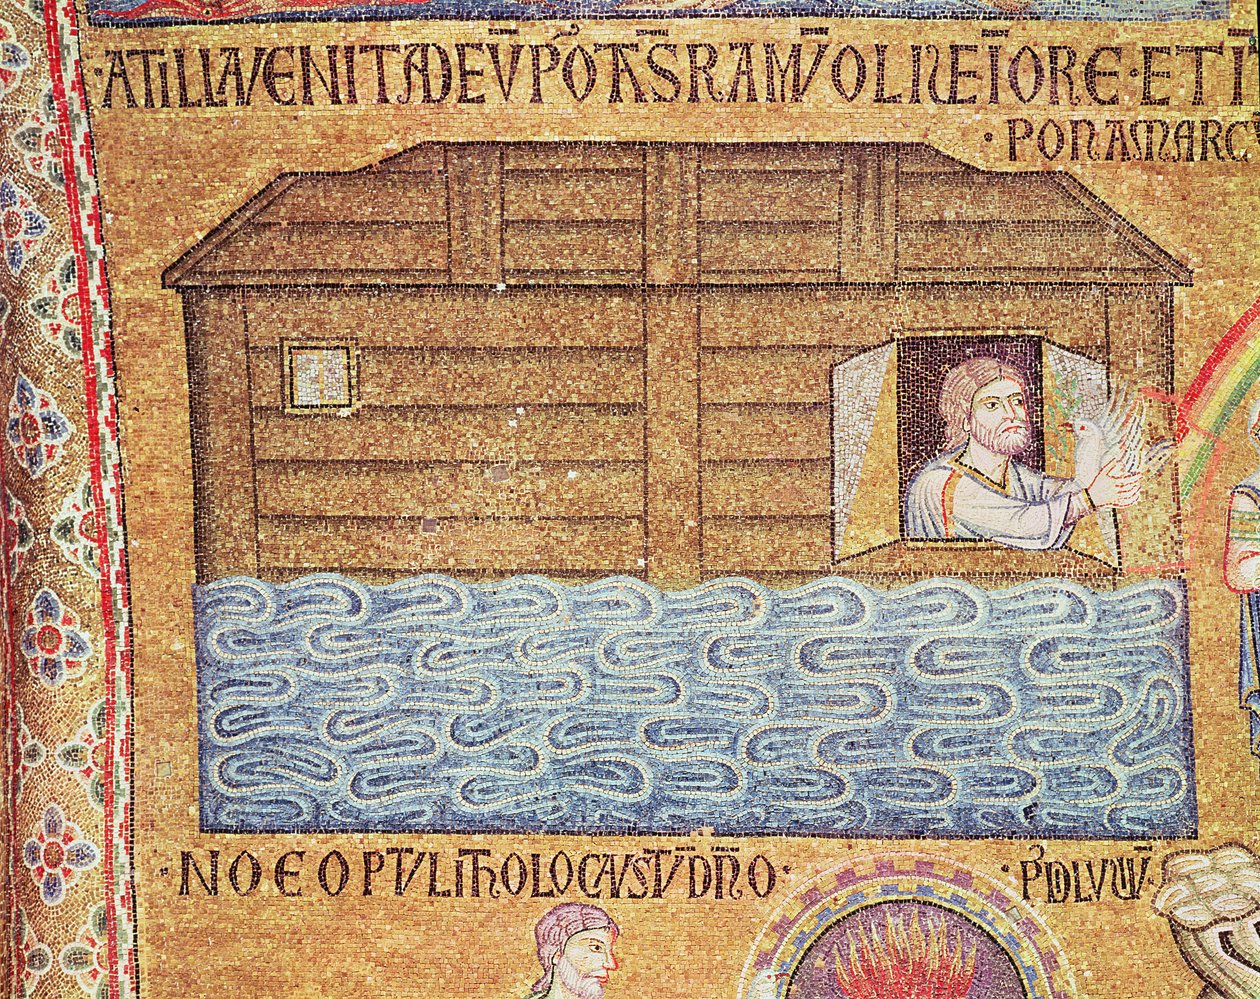 ·ATILLAVENITADEV̄PO̓TAS̄RAMV̄OLIVEĪORE·ETĪ
·PONAMARC
·NOEOPTVLITHOLOCAVSTV̄DN̄O·
·PDLVVIV̄·